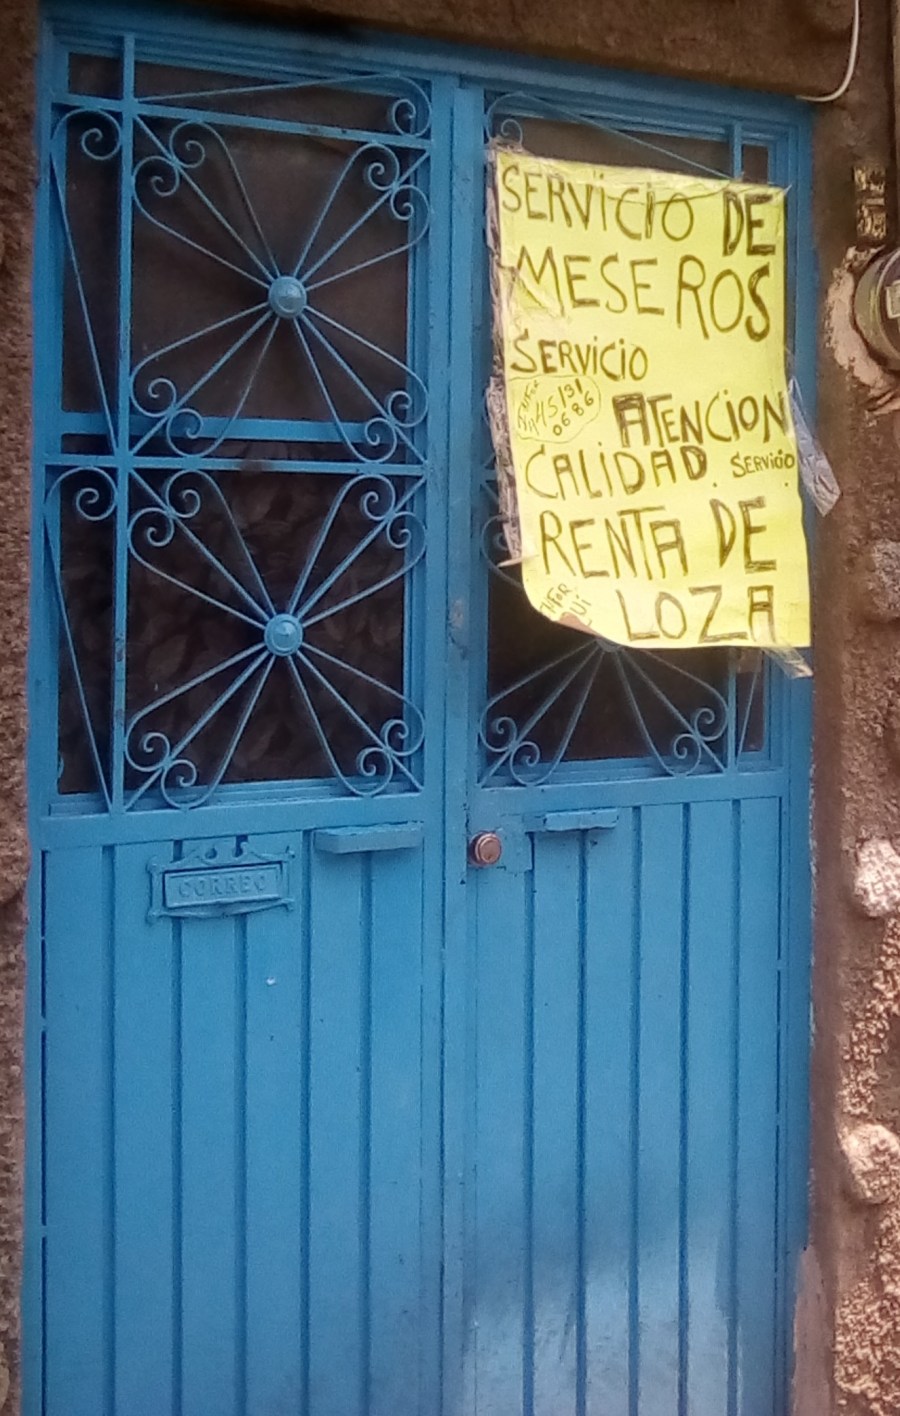 SERVICIO DE
MESEROS
SERVICIO
45131
0686
ATENCION
CALIDAD. SERVICIO.
RENTA DE
LOZA
CORREO